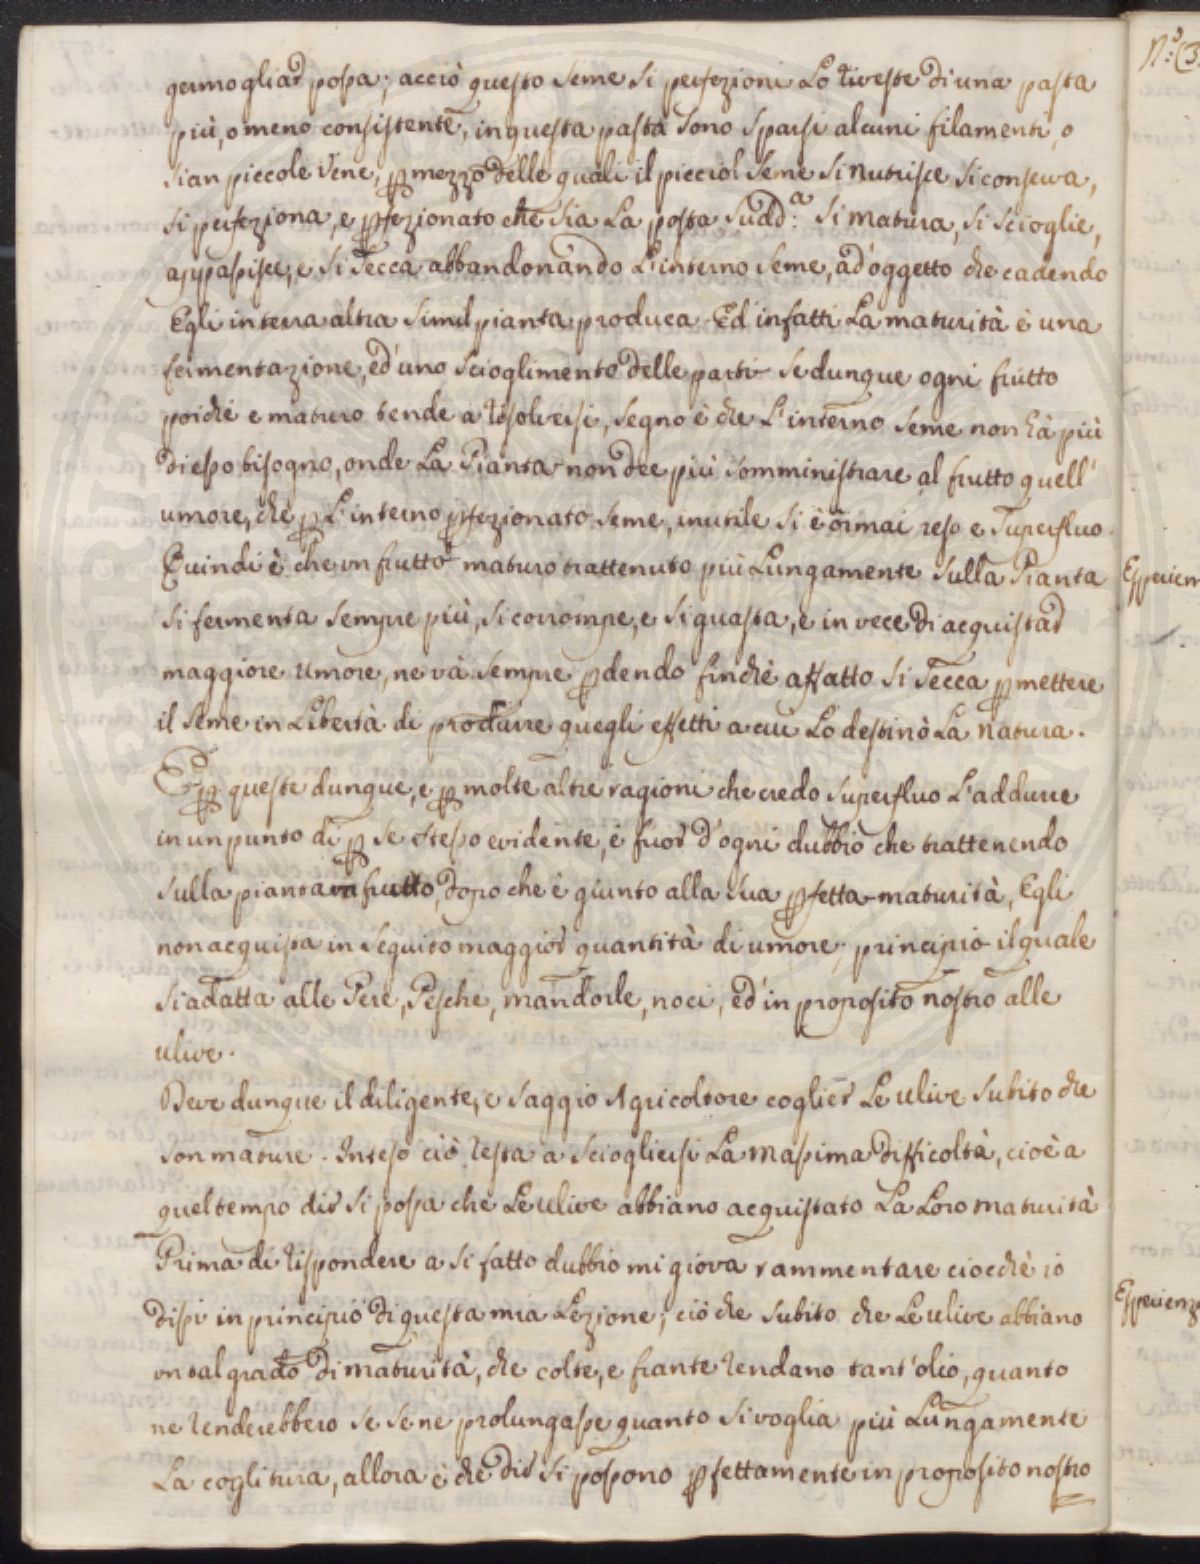 germogliar possa; acciò questo seme si perfezioni Lo riveste di una pasta
più, o meno consistente, in questa pasta sono sparsi alcuni filamenti, o
sian piccole Vene, ꝑ mezzo delle quali il picciol seme si nutrisce si conserva,
si perfeziona, e ꝑfezionato che sia La posta Sudd.ᵃ si matura, si scioglie,
appassisce, e si secca abbandonando L'interno seme, ad oggetto che cadendo
Egli in terra altra simil pianta produca. Ed' infatti La maturità è una
fermentazione, ed' uno scioglimento delle parti. Se dunque ogni frutto
poiché e maturo tende a risolversi, segno è che L'interno seme non hà più
di esso bisogno, onde La Pianta non dee più somministrare al frutto quell'
umore, che ꝑ L'interno ꝑfezionato seme, inutile si è ormai reso e superfluo.
Quindi è che un frutto maturo trattenuto più Lungamente sulla Pianta
si fermenta sempre più, si corrompe, e si guasta, e in vece di acquistar
maggiore umore, ne và sempre ꝑdendo finchè affatto si secca ꝑ mettere
il seme in Libertà di produrre quegli effetti a cui Lo destinò La Natura.
Ꝑ queste dunque, e ꝑ molte altre ragioni che credo superfluo L'addurre
in un punto di ꝑ se stesso evidente, è fuor d'ogni dubbio che trattenendo
sulla pianta un frutto, dopo che è giunto alla sua ꝑfetta maturità, Egli
non acquista in seguito maggior quantità di umore; principio il quale
si adatta alle Pere, Pesche, mandorle, noci, ed' in proposito nostro alle
ulive.
Deve dunque il diligente, e saggio Agricoltore coglier Le ulive subito che
son mature. Inteso ciò resta a sciogliersi La massima difficoltà, cioè a
quel tempo dir si possa che Le ulive abbiano acquistato La Loro maturità
Prima di rispondere a si fatto dubbio mi giova rammentare ciocchè io
dissi in principio di questa mia Lezione; ciò che subito che Le ulive abbiano
un tal grado di maturità, che colte, e frante rendano tant' olio, quanto
ne renderebbero se se ne prolungasse quanto si voglia più Lungamente
La coglitura, allora è che dir si possono ꝑfettamente in proposito nostro